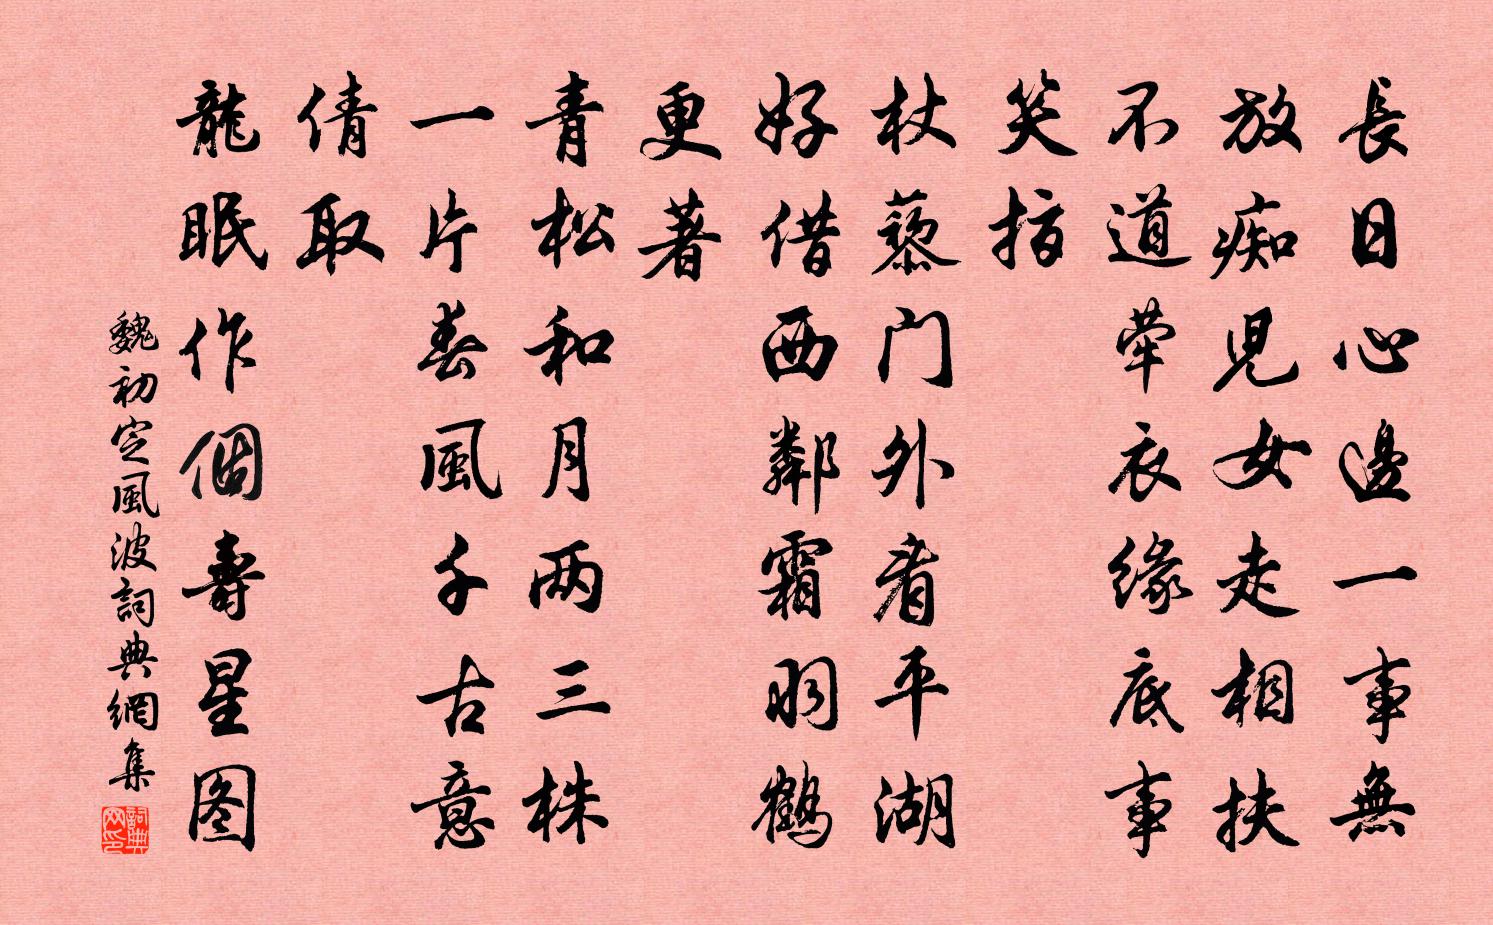 長日心邊一事無
放痴児女走相扶
不道牽衣緣底事
笑指
杖藜门外看平湖
好借西鄰霜羽鶴
更著
青松和月两三株
一片春風千古意
倩取
龍眠作個壽星图
魏初定風波詞典網集
詞典网印